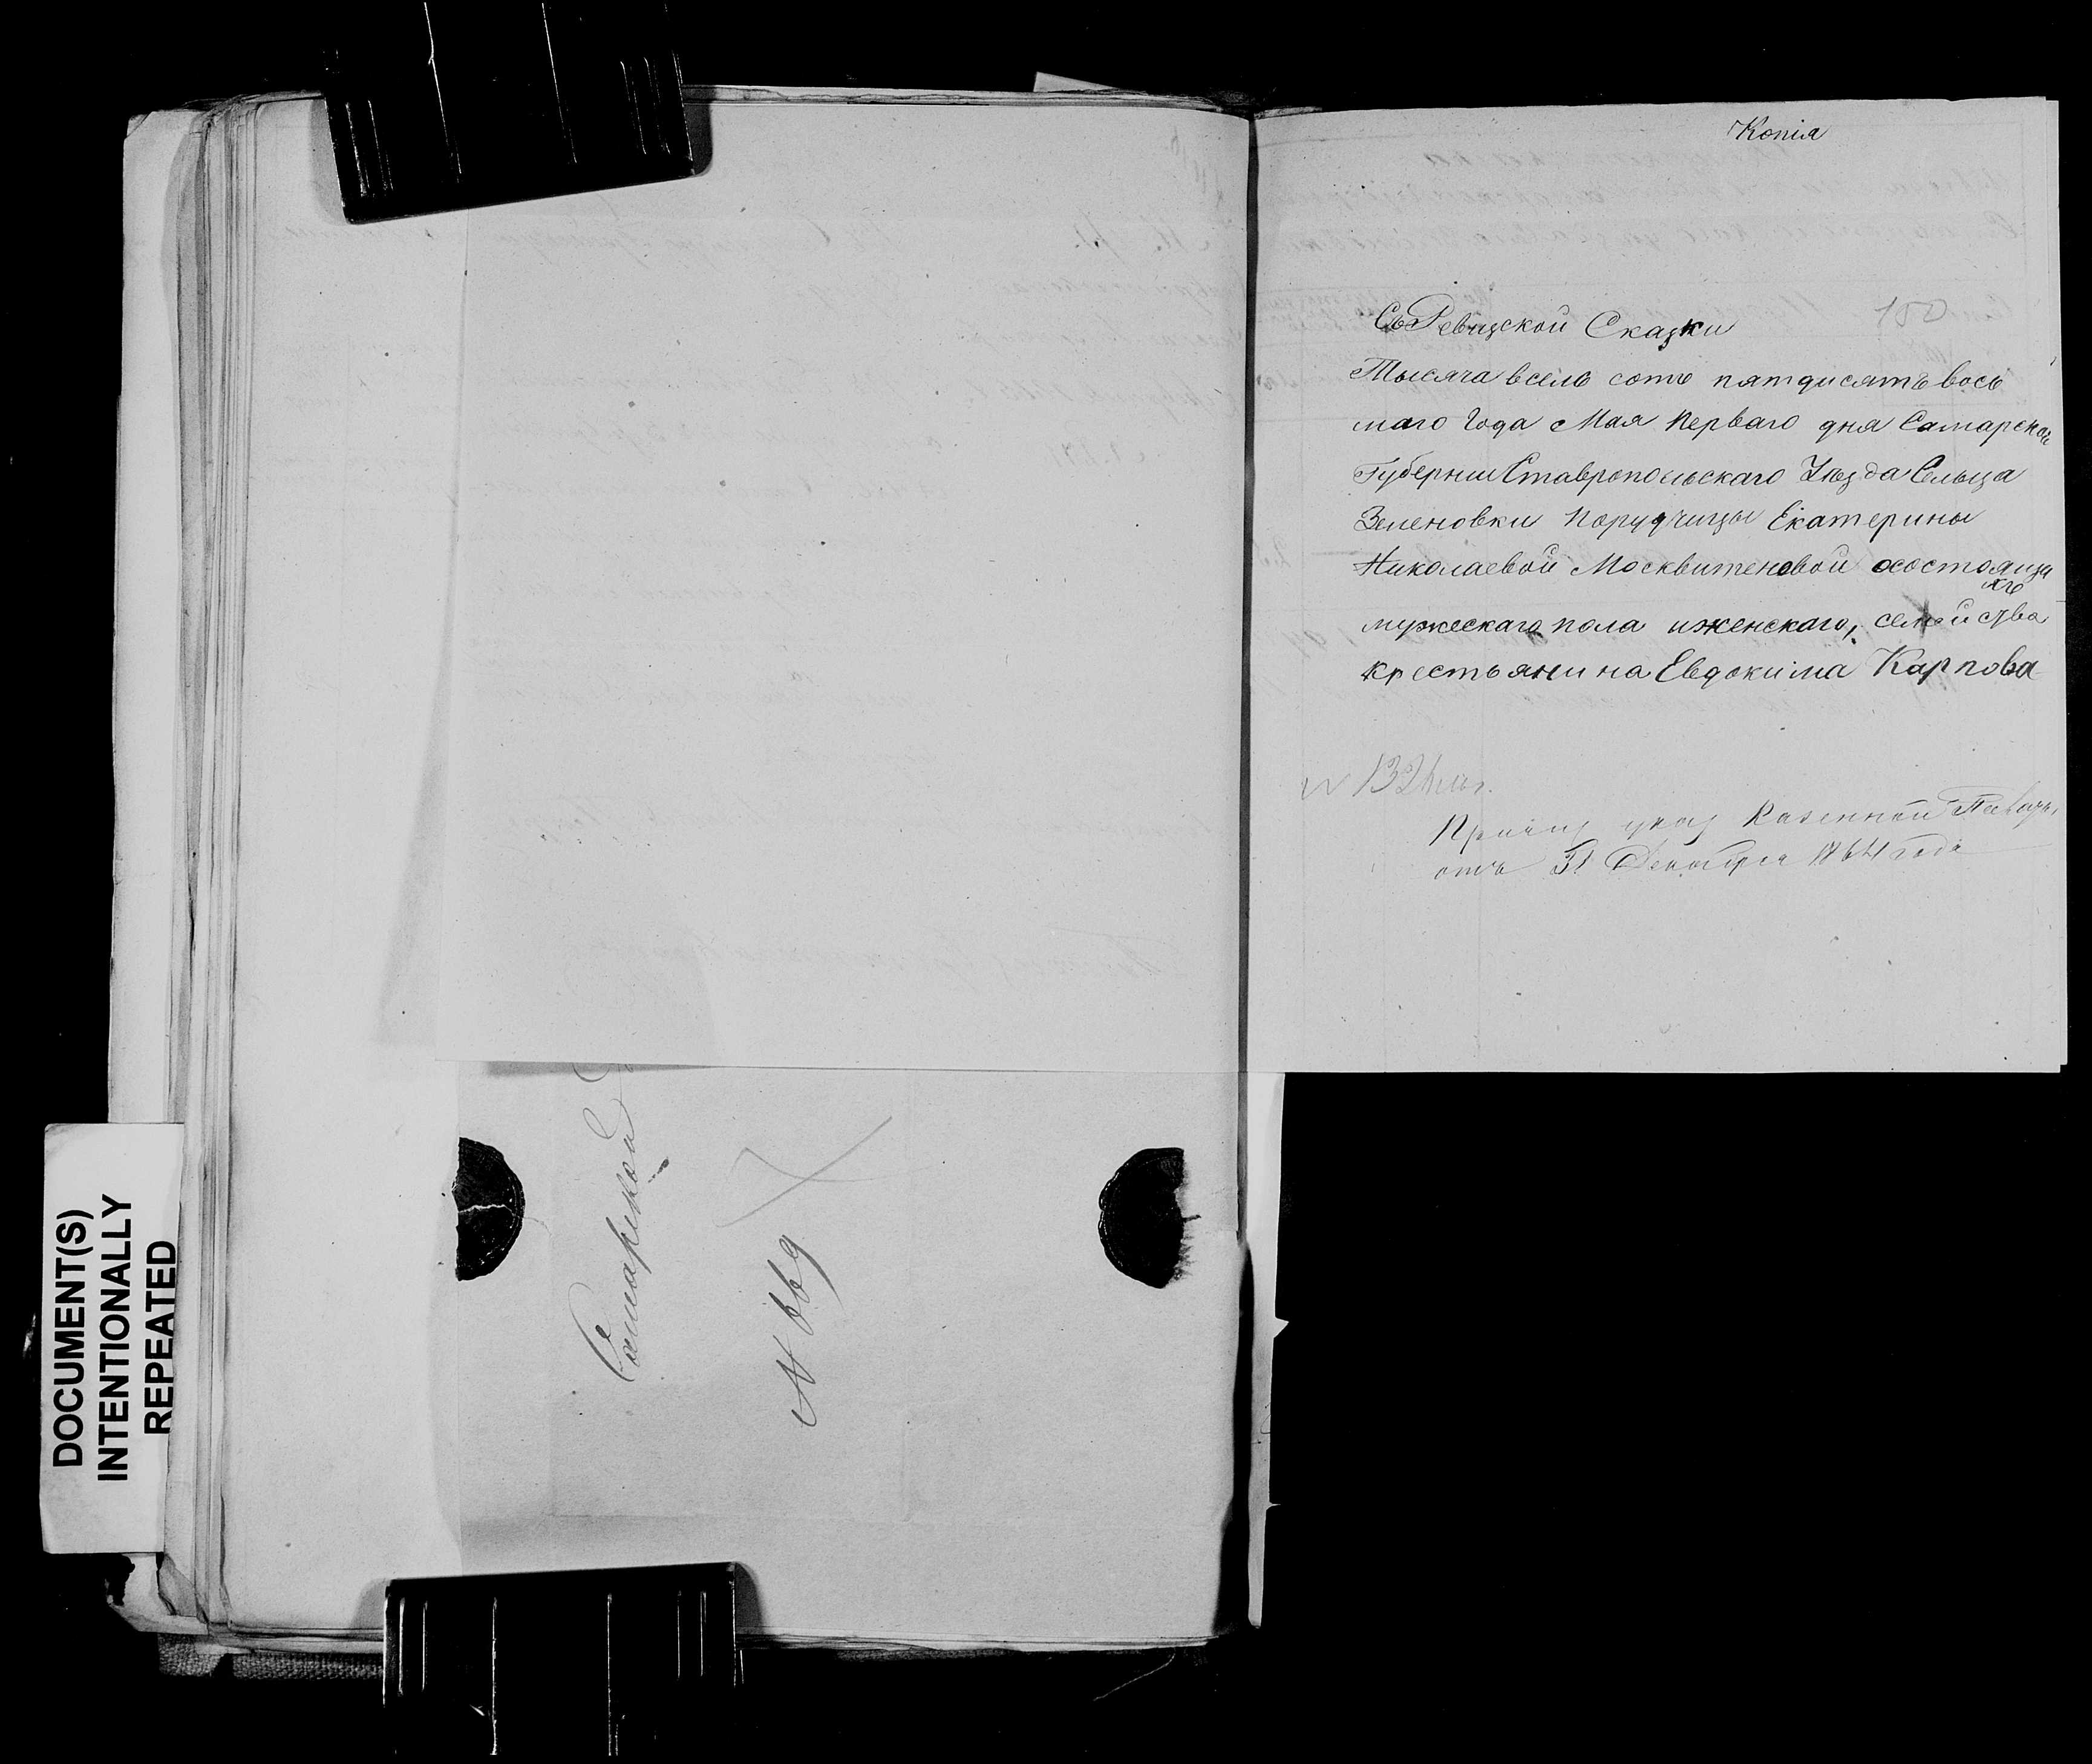 Копія
150
Съ Ревизской Сказки
Тысяча всемь сотъ пятдисятъ вось
маго Года Мая перваго дня Самарской
Губерніи Ставропольскаго Уѣзда Сельца
Зеленовки Порудчицы Екатерины
Николаевой Москвитеновой осостояща
хъ
мужескаго пола иженскаго, семейства
крестьянина Евдокима Карпова
N 132
указ Казенной
отъ 31 Декабря 1864 года
Самарской
N 669
DOCUMENT(S)
INTENTIONALLY
REPEATED